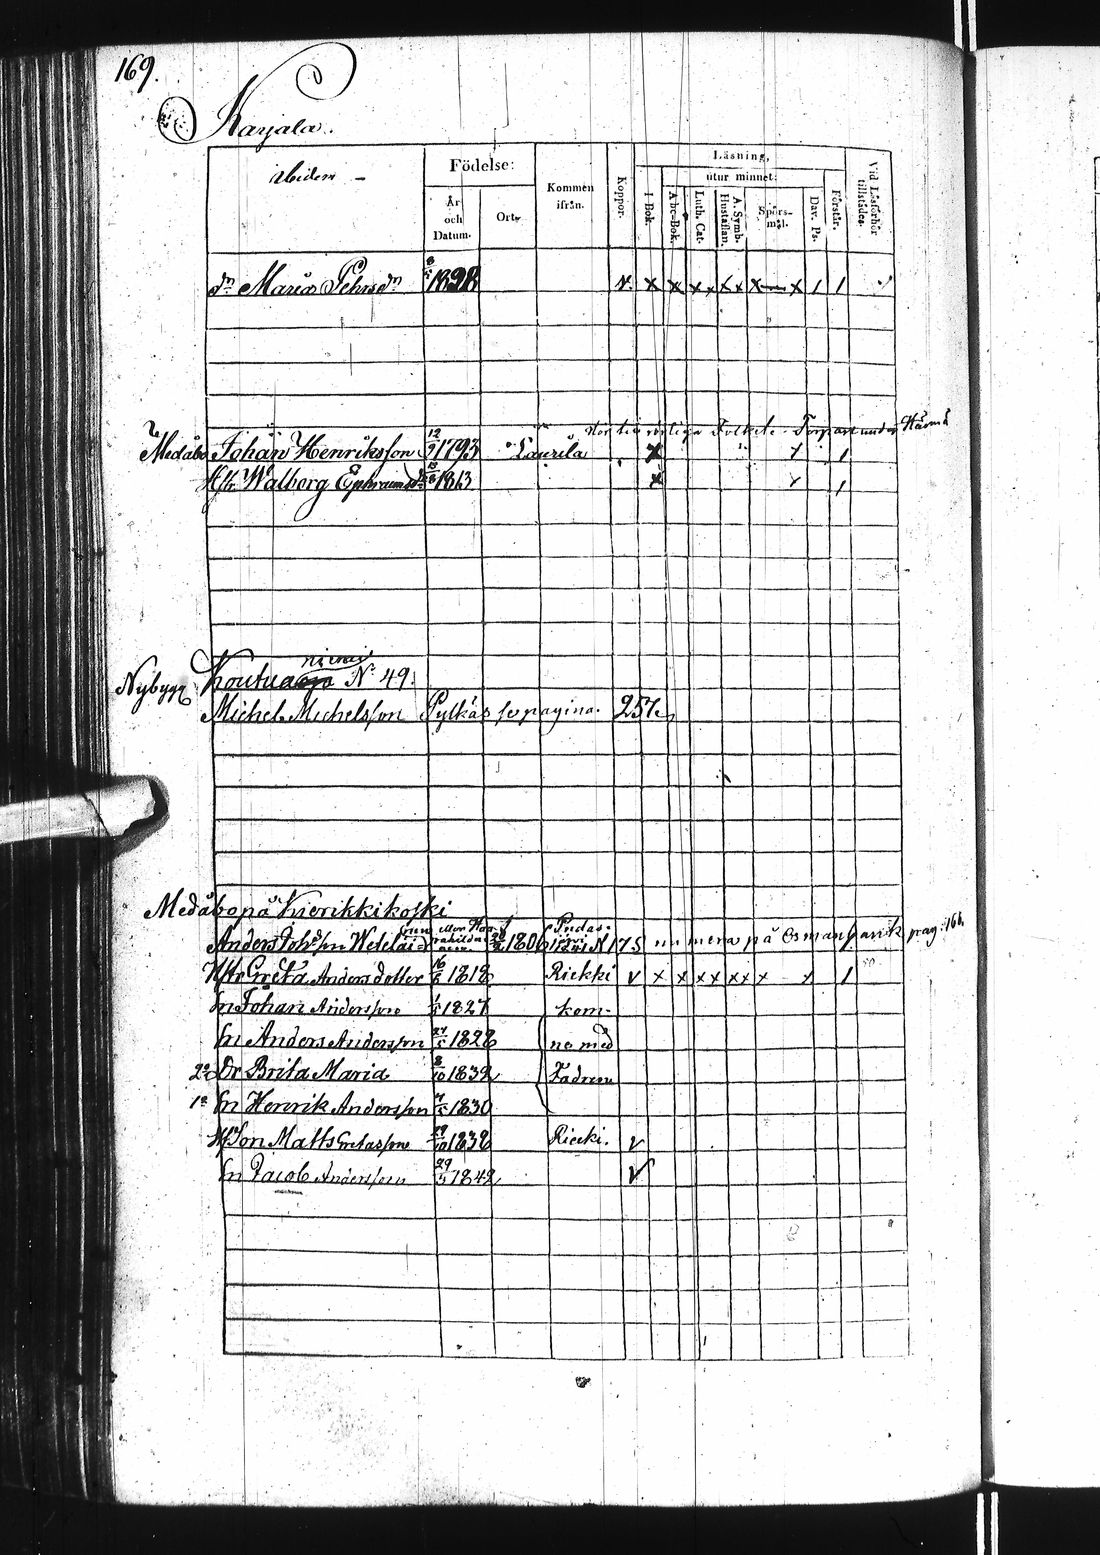 169.
Karjala.
Ibidem –
Födelse:
År och Datum.
Ort.
Kommen ifrån.
Koppor.
Läsning,
utur minnet:
I Bok.
Abc-Bok.
Luth. Cat.
A. Symb. Hustaflan.
Spörs-mål.
Dav. Ps.
Förstår.
Vid Läsförhör tillstädes.
dr Maria Pehrsdr 8/5 1828 v. x x x x x x x — x 1 1
Torpare under
Medåbo Johan Henriksson 12/9 1793 Laurila x x 1
Hstr Walborg Ephraimsdr 1813 x x 1
Nybygg Koutua niemi No 49.
Michel Michelsson Pylkäs se pagina. 257.
Medåbo på Kierikkikoski
Anders Joh. Son 1806 No 175 numera på pag: 166
Hstr Greta Andersdotter 16/6 1818 Riekki v x x x x x x x x 1
Sn Johan Andersson 1/5 1827 kom-
Sn Anders Andersson 1828 ne med
2a Dr Brita Maria 8/10 1832 Fadren
1a Sn Henrik Andersson 1830
Hs Son Matts Gretasson 29/10 1838 Riecki. v
Sn Jacob Andersson 29 1842 v